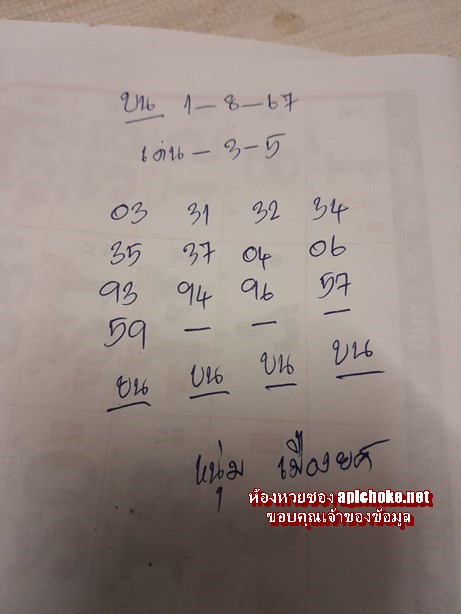 บน 1-8-67
เด่น-3-5
03 31 32 34
35 37 04 06
93 94 96 57
59 - - -
บน บน บน บน
หนุ่ม เมืองยศ
ห้องหวยซอง aplchoke.net
ขอบคุณเจ้าของข้อมูล